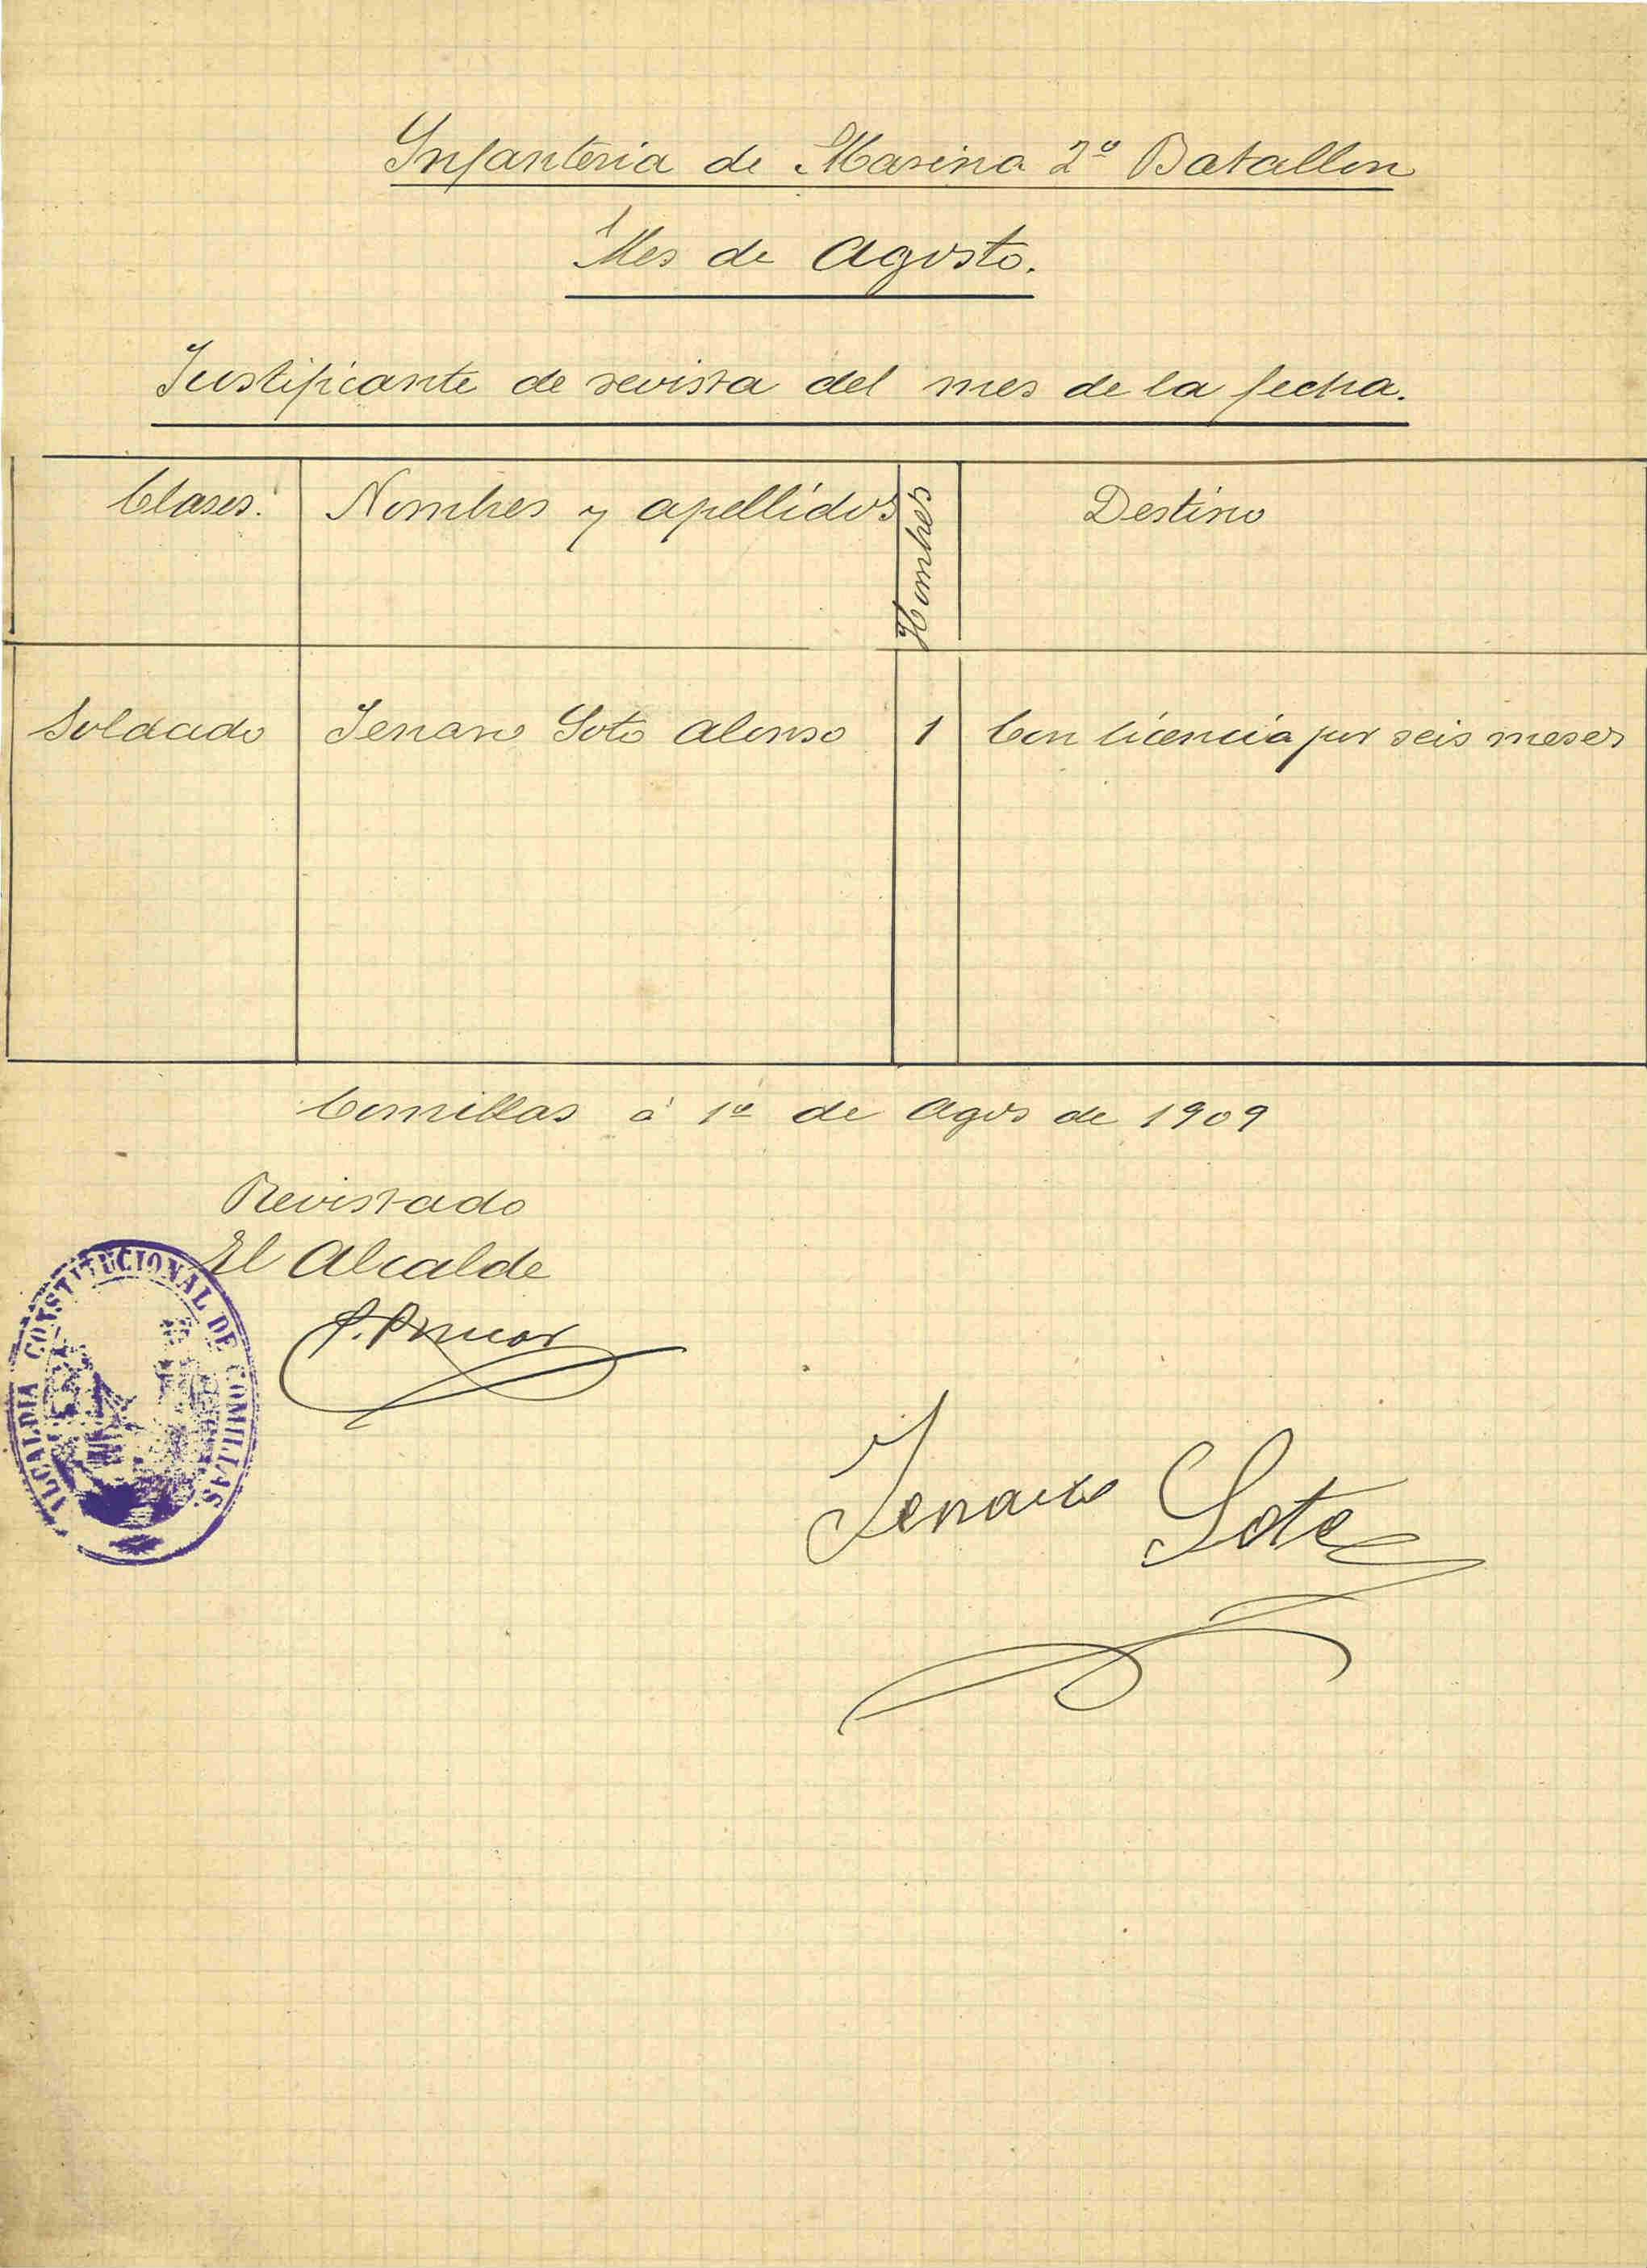 Infanteria de Marina 2º Batallon
Mes de Agosto.
Justificante de revista del mes de la fecha.
Clases. Nombres y apellidos Hombres Destino
Soldado Jenaro Soto Alonso 1 Con licencia por seis meses
Comillas á 1º de Agos de 1909
Revistado
El Alcalde
ALCALDIA CONSTITUCIONAL DE COMILLAS.
Jenaro Soto